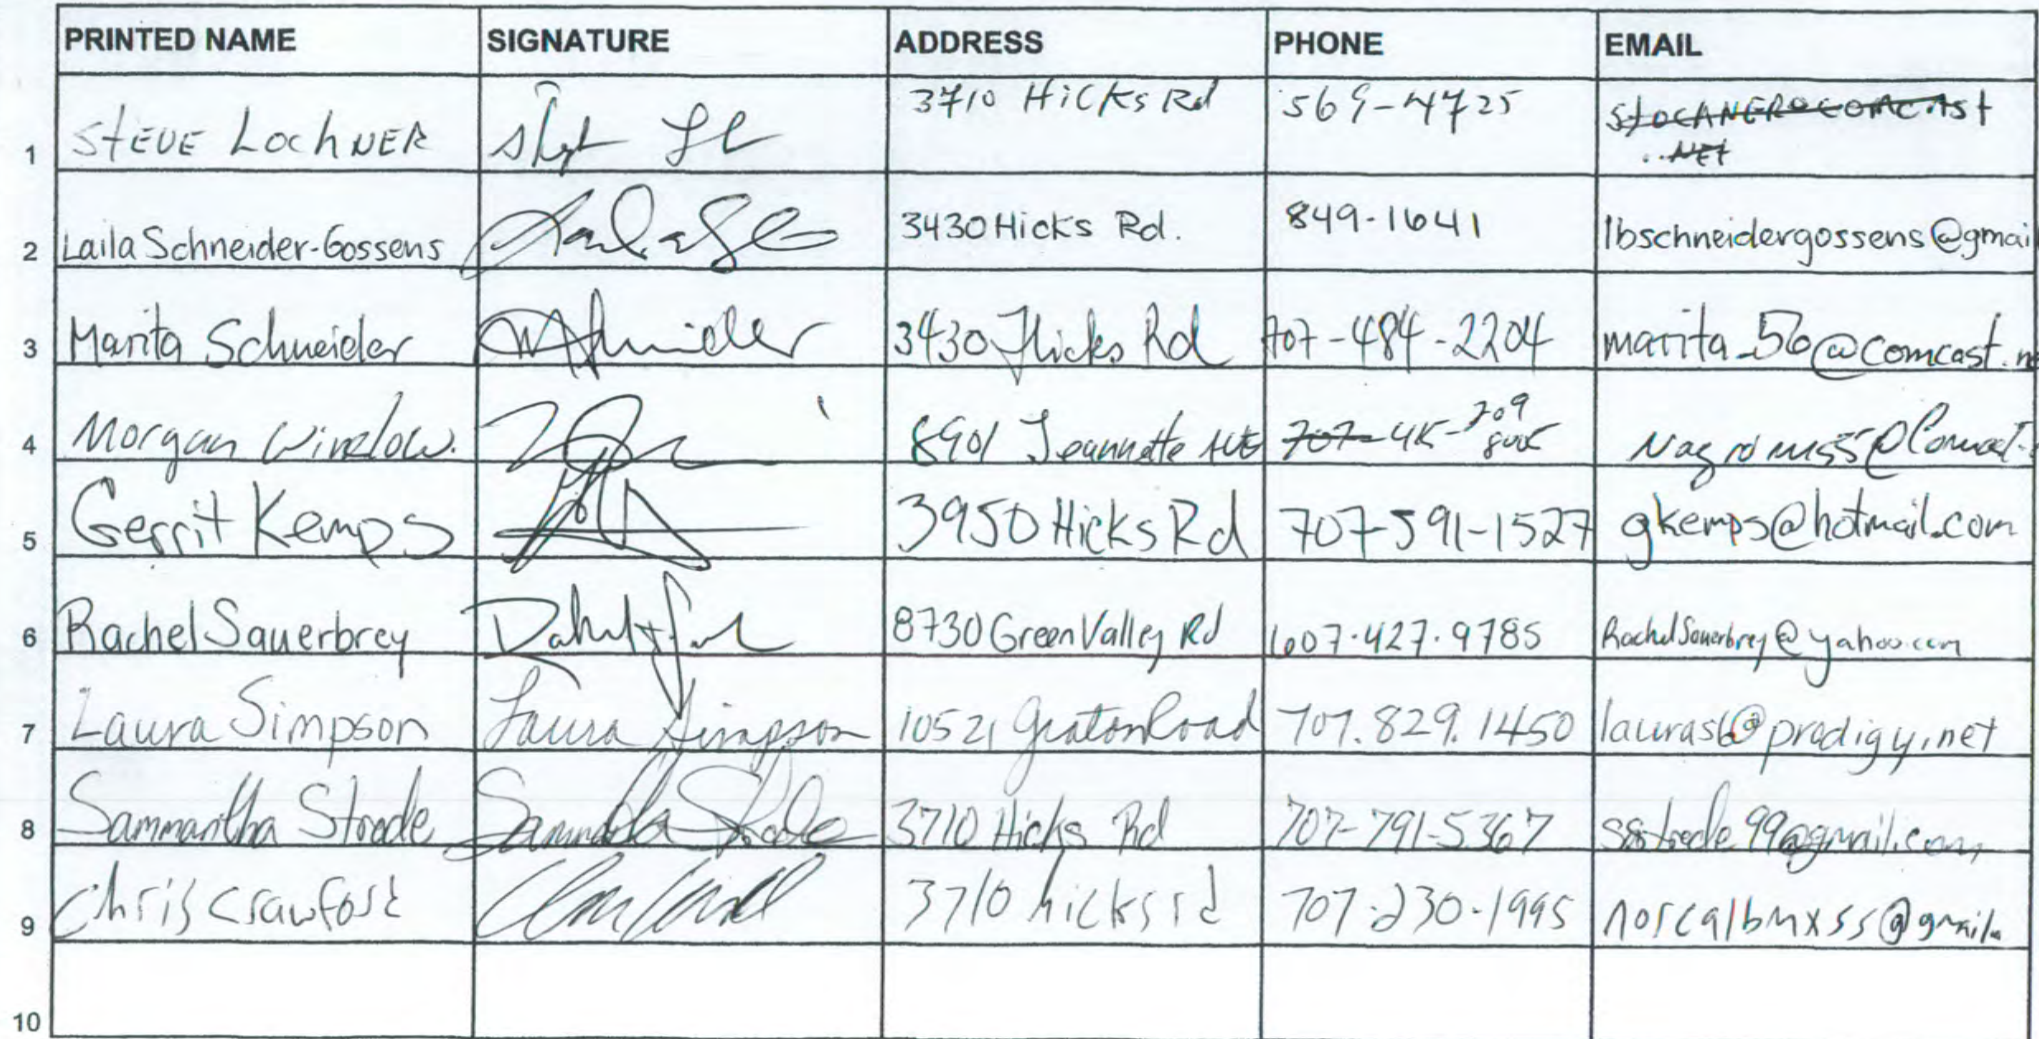 PRINTED NAME SIGNATURE ADDRESS PHONE EMAIL
1 STEVE LOCHNER 3710 Hicks Rd 569-4725
2 Laila Schneider-Gossens 3430 Hicks Rd. 849-1641 lbschneidergossens@gmail
3 Marita Schneider 3430 Hicks Rd 707-484-2204 marita_56@comcast.n
4 Morgan Winslow. 8901 Jeannette AVE
5 Gerrit Kemps 3950 Hicks Rd 707-591-1527 gkemps@hotmail.com
6 Rachel Sauerbrey 8730 Green Valley Rd 607.427.9785 RachelSauerbrey@yahoo.com
7 Laura Simpson Laura Simpson 10521 Graton Road 707.829.1450 lauras6@prodigy.net
8 Sammantha Strode Sammantha Strode 3710 Hicks Rd 707-791-5367 sstrode99@gmail.com
9 Chris Crawford 3710 hicks rd 707-230-1995 norcalbmxss@gmail.
10